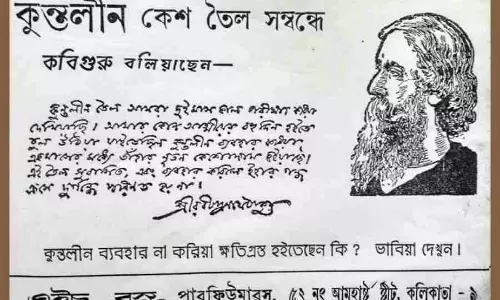 কুন্তলীন কেশ তৈল সম্বন্ধে
কবিগুরু বলিয়াছেন—
কুন্তলীন তৈল আমরা দুইমাস কাল পরীক্ষা করিয়া
দেখিয়াছি। আমার কোন আত্মীয়ের বহু দিন হইতে
চুল উঠিয়া যাইতেছিল কুন্তলীন ব্যবহার করিয়া
একমাসের মধ্যে তাঁহার নূতন কেশোদ্গম হইয়াছে।
এই তৈল সুবাসিত, এবং ব্যবহার করিলে ইহার গন্ধ
ক্রমে দুর্গন্ধে পরিণত হয় না।
শ্রীরবীন্দ্রনাথ ঠাকুর
কুন্তলীন ব্যবহার না করিয়া ক্ষতিগ্রস্ত হইতেছেন কি ? ভাবিয়া দেখুন।
পারফিউমারস, ৫২ নং আমহার্ষ্ট ষ্ট্রীট, কলিকাতা - ৯